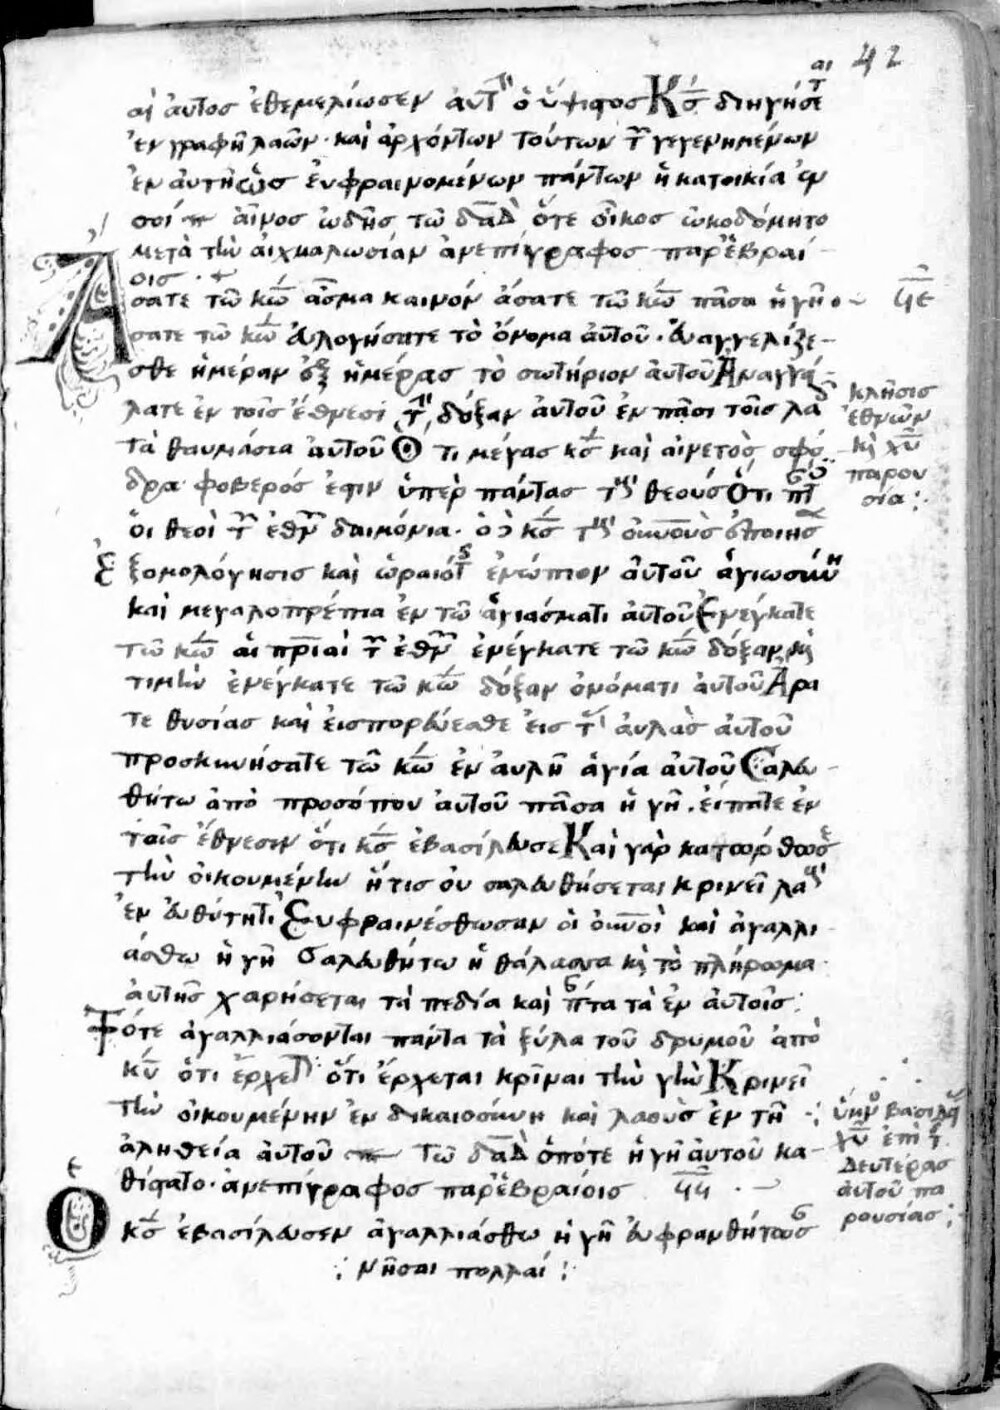 42
αὶ αὐτος ἐθεμελίωσεν αὐτὴν ὁ ὕψιστος Κς διηγήσεται
ἐν γραφῆ λαῶν· καὶ ἀρχόντων τούτων τῶν γεγενημένων
ἐν αὐτῆ ὡς εὐφραινομένων πάντων ἡ κατοικία ἐν
σοί αἶνος ὠδῆς τῶ δαδ ὅτε οἶκος ὠκοδόμητο
μετὰ τὴν αἰχμαλωσίαν ἀνεπίγραφος παρ' ἑβραί
οις
Ἄσατε τῶ κω ἆσμα καινόν ἄσατε τῶ κω πᾶσα ἡ γῆ
ϟε
σατε τῶ κω εὐλογήσατε τὸ ὄνομα αὐτοῦ· εὐαγγελίζε
σθε ἡμέραν ἐξ ἡμέρας τὸ σωτήριον αὐτοῦ Ἀναγγεί
λατε ἐν τοῖς ἔθνεσι τὴν δόξαν αὐτοῦ ἐν πᾶσι τοῖς λαοῖς
τὰ θαυμάσια αὐτοῦ Ὅτι μέγας κς καὶ αἰνετὸς σφό
δρα φοβερός ἐστιν ὑπὲρ πάντας τοὺς θεούς Ὅτι πάντες
οἱ θεοὶ τῶν ἐθνῶν δαιμόνια· ὁ δὲ κς τοὺς οὐνοὺς ἐποίησεν
κλῆσις
ἐθνῶν
κὶ χυ
παρου
σία:
Ἐξομολόγησις καὶ ὡραιότης ἐνώπιον αὐτοῦ ἁγιωσύνη
καὶ μεγαλοπρέπια ἐν τῶ ἁγιάσματι αὐτοῦ Ἐνέγκατε
τῶ κω αἱ πριαὶ τῶν ἐθνῶν ἐνέγκατε τῶ κω δόξαν κὶ
τιμὴν ἐνέγκατε τῶ κω δόξαν ὀνόματι αὐτοῦ Ἄρα
τε θυσίας καὶ εἰσπορεύεσθε εἰς τὰς αὐλὰς αὐτοῦ
προσκυνήσατε τῶ κω ἐν αὐλῆ ἁγία αὐτοῦ Σαλευ
θήτω ἀπὸ προσόπου αὐτοῦ πᾶσα ἡ γῆ· εἴπατε ἐν
τοῖς ἔθνεσιν ὅτι κς ἐβασίλευσε Καὶ γὰρ κατωρθωσε
τὴν οἰκουμένην ἥτις οὐ σαλευθήσεται κρινεῖ λαοὺς
ἐν εὐθύτητι Εὐφραινέσθωσαν οἱ οὐνοὶ καὶ ἀγαλλι
άσθω ἡ γῆ Σαλευθήτω ἡ θάλασσα κὶ τὸ πλήρωμα
αὐτῆς χαρήσεται τὰ πεδία καὶ πάντα τὰ ἐν αὐτοῖς:
Τότε ἀγαλλιάσονται πάντα τὰ ξύλα τοῦ δρυμοῦ ἀπὸ
κυ ὅτι ἔρχεται ὅτι ἔρχεται κρῖναι τὴν γῆν Κρινεῖ
τὴν οἰκουμένην ἐν δικαιοσύνη καὶ λαοὺς ἐν τῆ
ἀληθεία αὐτοῦ τῶ δαδ ὁπότε ἡ γῆ αὐτοῦ κα
θίστατο· ἀνεπίγραφος παρ' ἑβραίοις ϟϛ
χυ ἐπὶ τῆς
Δευτέρας
αὐτοῦ πα
ρουσίας:
Ὁ κς ἐβασίλευσεν ἀγαλλιάσθω ἡ γῆ εὐφρανθήτωσαν
: νῆσαι πολλαί :